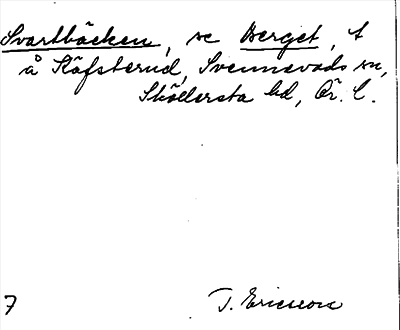 Svartbäcken, se Berget, t
å Käfsterud, Svennevads sn,
Sköllersta hd, Ör. l.
7
T. Ericsson